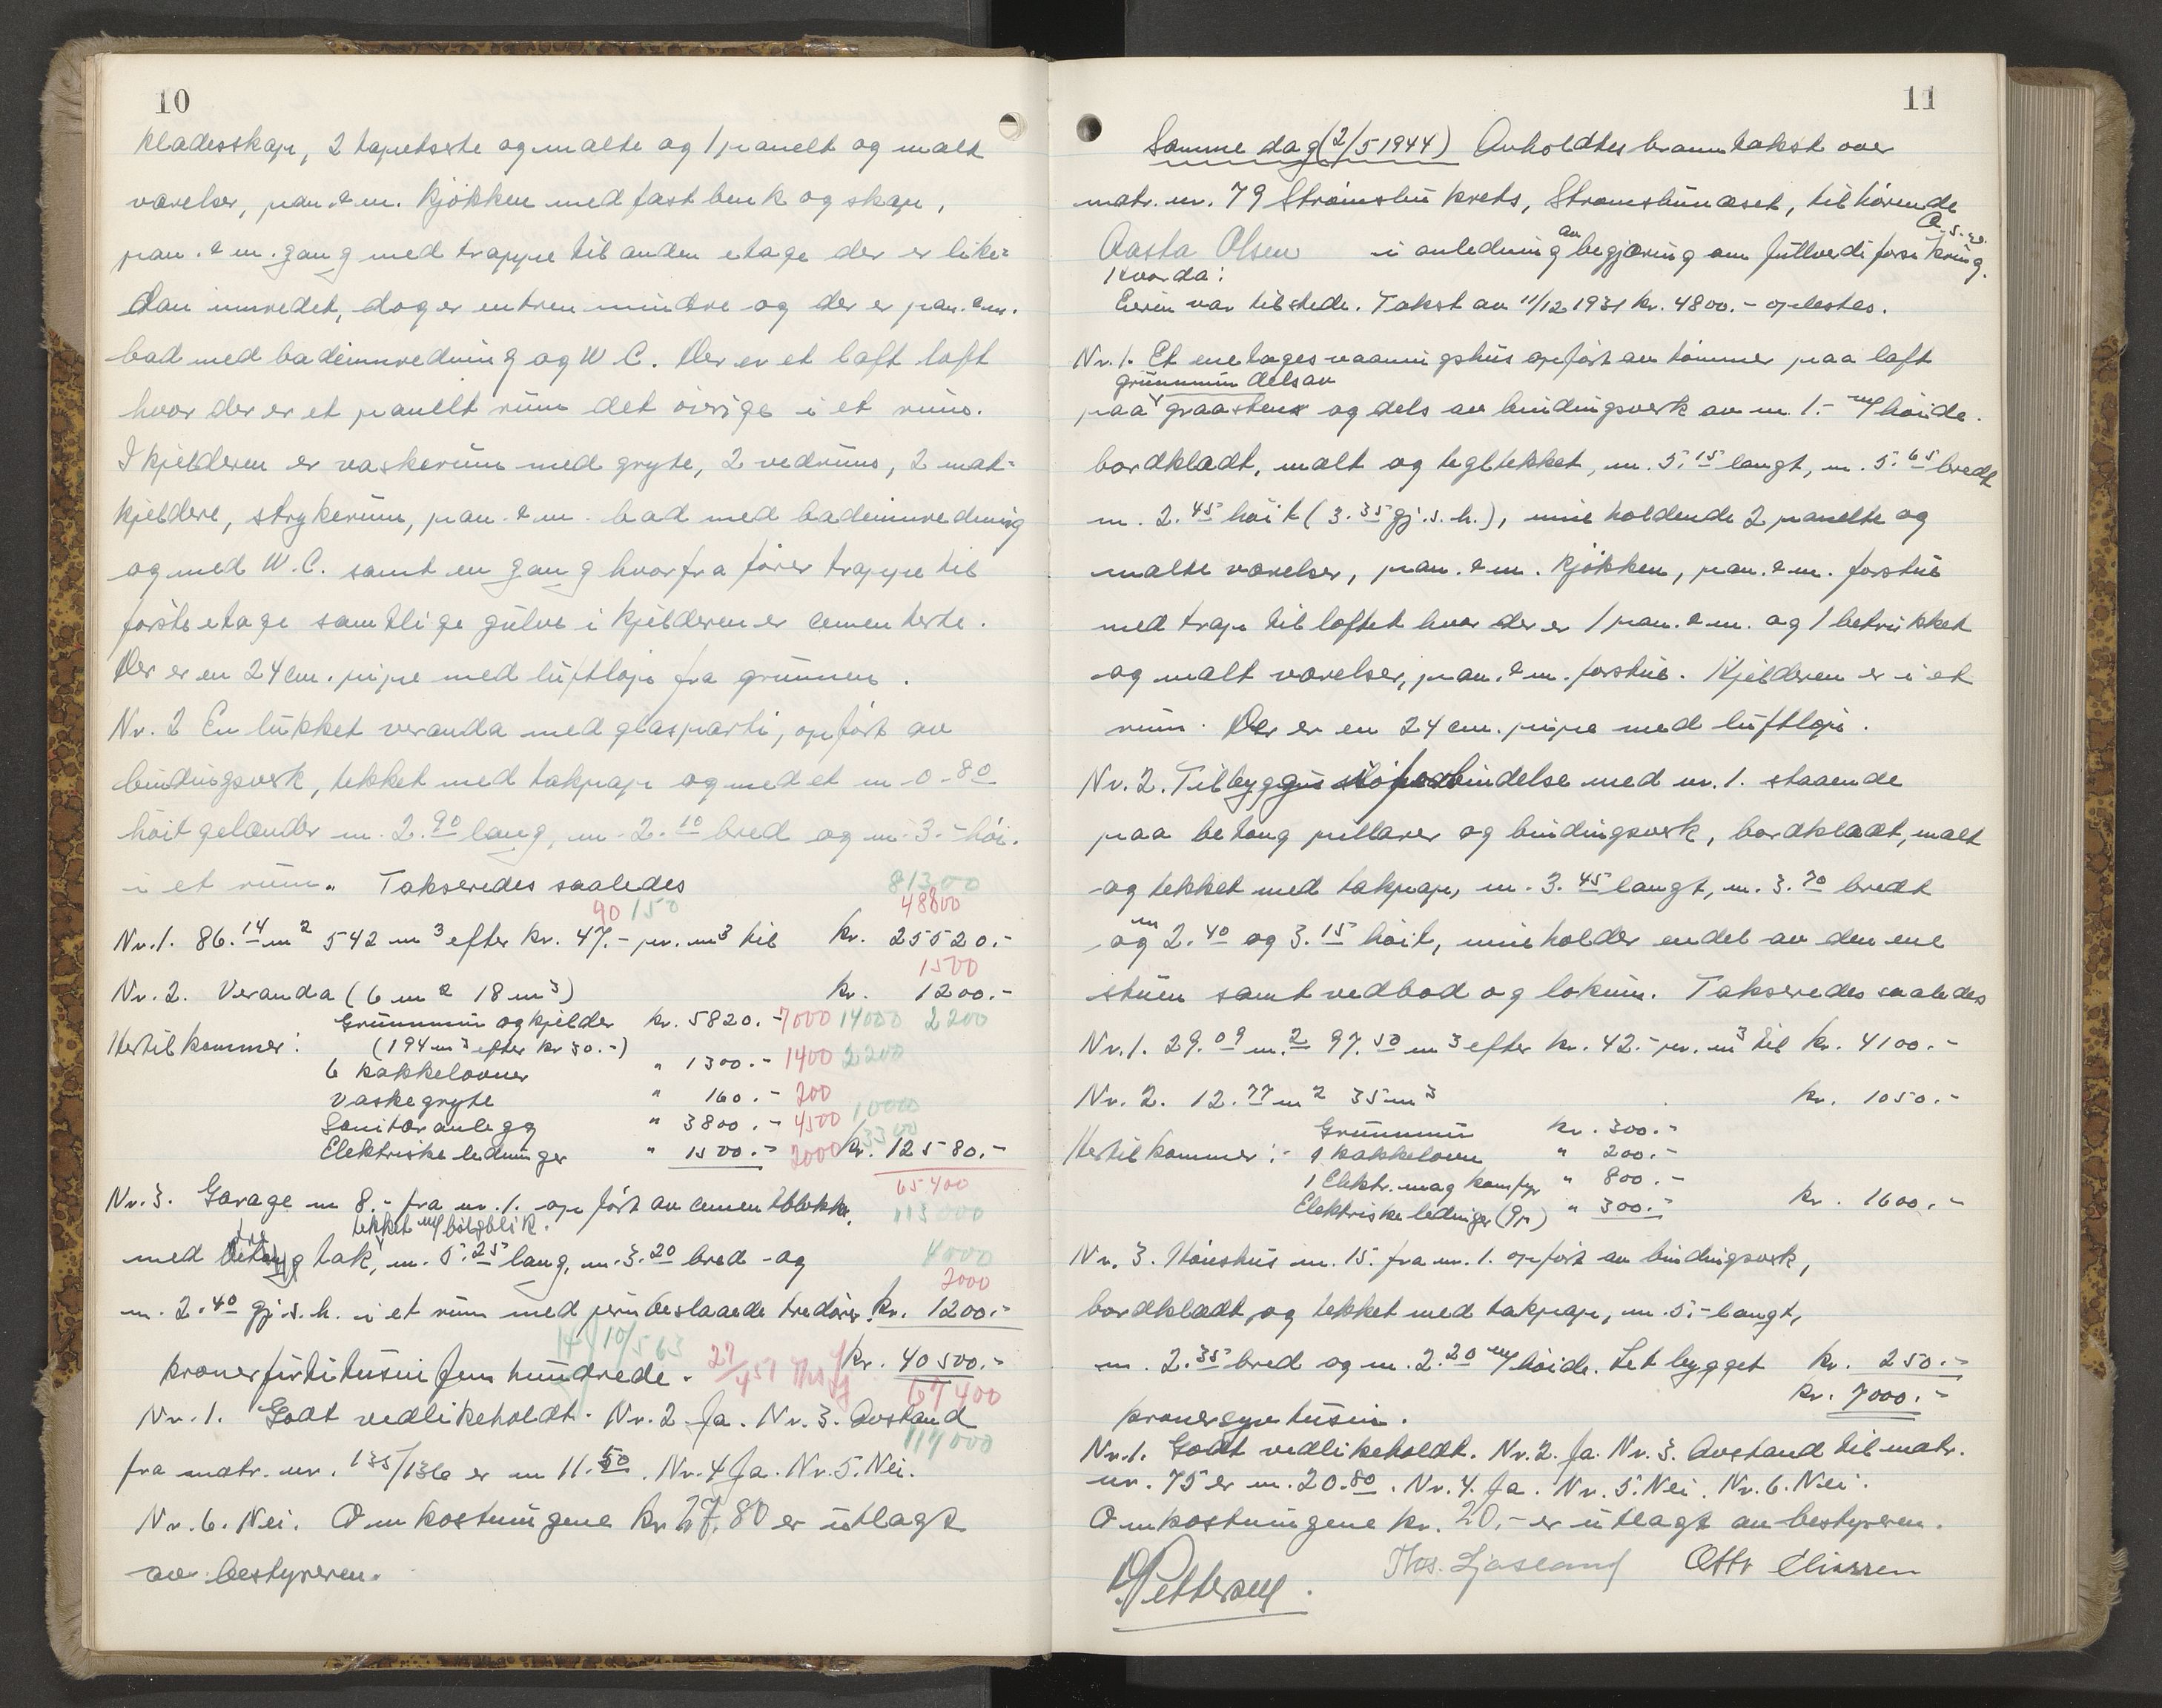 10
klædesskap, 2 tapetserte og malte og 1 panelt og malt
værelser, pan. & m. kjøkken med fast benk og skap,
pan. & m. gang med trappe til anden etage der er like=
dan innredet, dog er entren mindre og der er pan. & m.
bad med badeinnredning og W C. Der er et loft loft
hvor der er et panelt rum det øvrige i et rum.
I kjelderen er vaskerum med gryte, 2 vedrum, 2 mat=
kjeldere, strykerum, pan. & m. bad med badeinnredning
og med W.C. samt en gang hvorfra fører trappe til
første etage samtlige gulve i kjelderen er cementerte.
Der er en 24 cm. pipe med luftløp fra grunnen.
Nr. 2 En lukket veranda med glasparti, opført av
bindingsverk, tekket med takpap og med et m 0.80
høit gelænder m. 2.90 lang, m. 2.10 bred og m. 3.- høi.
i et rum. Takseredes saaledes
81300
90 150 48800
Nr. 1. 86.14 m2 542 m3 efter kr. 47.- pr. m3 til kr. 25520.-
1500
Nr. 2. Veranda (6 m2 18 m3) kr. 1200.-
Grunnmur og kjelder kr. 5820.- 7000 14000 2200
Hertil kommer: (194 m3 efter kr 30.-)
6 kakkelovner " 1300.- 1400 2200
Vaskegryte " 160.- 200
Sanitæranlegg " 3800.- 4500 10000
Elektriske ledninger " 1500.- 2000 3300 kr. 12580.-
65400
Nr. 3. Garage m 8.- fra nr. 1. opført av cementblokke,
113000
tekket m/ bølgeblik.
med tre tak, m. 5.25 lang, m. 3.20 bred og
4000
2000
m. 2.40 gj.s.h. i et rum med jernbeslaaede tredører. kr. 1200.-
10/5 63
kroner førtitusin fem hundrede. 27/4 51 kr. 40500.-
67400
Nr. 1. Godt vedlikeholdt. Nr. 2. Ja. Nr. 3. Avstand
117000
fra matr. nr. 135/136 er m 11.50. Nr. 4 Ja. Nr. 5. Nei.
Nr. 6. Nei. Omkostningene kr 67,80 er utlagt
av bestyreren.
11
Samme dag (2/5 1944) Avholdtes branntakst over
matr. nr. 79 Strømsbu krets, Strømsbuneset, tilhørende
Aasta Olsen i anledning av begjæring om fullverdiforsikring.
Hvorda:
Eieren var tilstede. Takst av 11/12 1931 kr. 4800.- oplestes.
Nr. 1. Et enetages vaaningshus opført av tømmer paa loft
grunnmur dels av
paa graasten og dels av bindingsverk av m. 1.- m/ høide.
bordklædt, malt og tegltekket, m. 5.15 langt, m. 5.65 bredt
m. 2.45 høit (3.35 gj.s.h.), inneholdende 2 panelte og
malte værelser, pan. & m. kjøkken, pan. & m. forstue
med trap til loftet hvor der er 1 pan. & m. og 1 betrukket
og malt værelser, pan. & m. forstue. Kjelderen er i et
rum. Der er en 24 cm. pipe med luftløp.
Nr. 2. Tilbygg i forbindelse med nr. 1. staaende
paa betong pillarer og bindingsverk, bordklædt, malt
og tekket med takpap, m. 3.45 langt, m. 3.70 bredt
m
og 2.40 og 3.15 høit, inneholder endel av den ene
stuen samt vedbod og lokum. Takseredes saaledes
Nr. 1. 29.09 m.2 97.50 m3 efter kr. 42.- pr. m3 til kr. 4100.-
Nr. 2. 12.77 m2 35 m3 kr. 1050.-
Grunnmur kr. 300.-
Hertil kommer:- 1 kakkelovn " 200.-
1 Elektr. mag komfyr " 800.-
Elektriske ledninger (9p) " 300.- kr. 1600.-
Nr. 3. Hønshus m. 15. fra nr. 1. opført av bindingsverk,
bordklædt og tekket med takpap, m. 5.- langt,
m. 2.35 bred og m. 2.20 m/ høide. Let bygget kr. 250.-
kr. 7000.-
kroner syv tusin.
Nr. 1. Godt vedlikeholdt. Nr. 2. Ja. Nr. 3. Avstand til matr.
nr. 75 er m. 20.80. Nr. 4. Ja. Nr. 5. Nei. Nr. 6. Nei.
Omkostningene kr. 20,- er utlagt av bestyreren.
Pettersen. Thos. Ljøsland Otto Eliassen